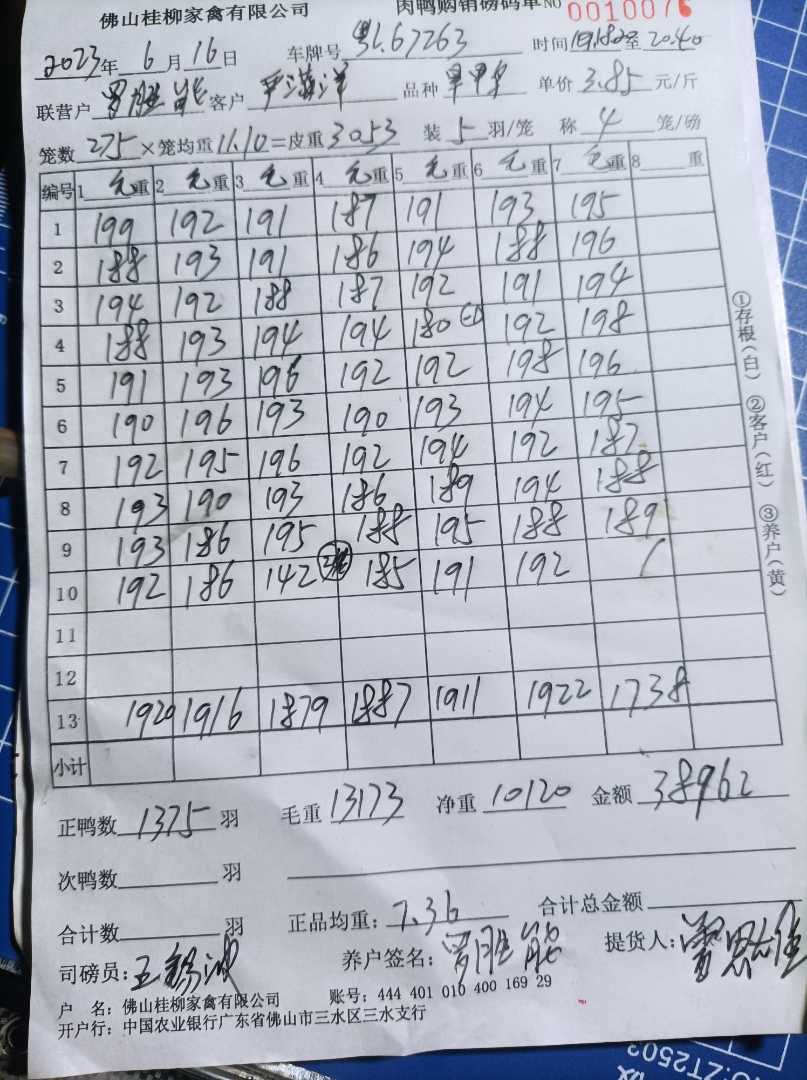 佛山桂柳家禽有限公司 肉鸭购销磅码单 NO 0010076
2023年 6月16日 车牌号 粤L67263 时间 至 20.40
联营户 罗胜能 客户 品种 单价 3.85 元/斤
笼数 275 ×笼均重 11.10 =皮重 3053 装 5 羽/笼 称 4 笼/磅
编号 1 毛重 2 毛重 3 毛重 4 毛重 5 毛重 6 毛重 7 毛重 8 重
1 199 192 191 187 191 193 195
2 188 193 191 186 194 188 196
3 194 192 188 187 192 191 194
4 188 193 194 194 180 192 198
5 191 193 196 192 192 198 196
6 190 196 193 190 193 194 195
7 192 195 196 192 194 192 187
8 193 190 193 186 189 194 188
9 193 186 195 188 195 188 189
10 192 186 142 185 191 192 /
11
12
13 1920 1916 1879 1887 1911 1922 1738
小计
正鸭数 1375 羽 毛重 13173 净重 10120 金额 38962
次鸭数 羽
合计数 羽 正品均重: 7.36 合计总金额
司磅员: 养户签名: 罗胜能 提货人:
户 名: 佛山桂柳家禽有限公司 账号: 444 401 010 400 169 29
开户行: 中国农业银行广东省佛山市三水区三水支行
①存根(白) ②客户(红) ③养户(黄)